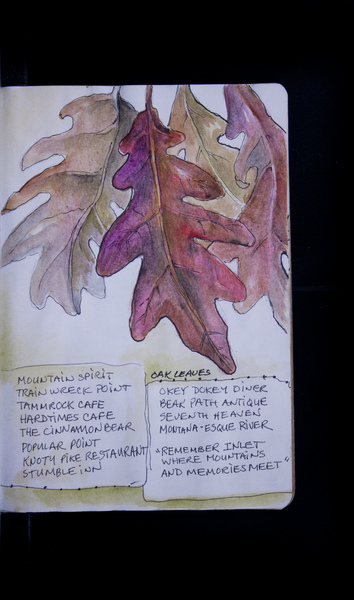 MOUNTAIN SPIRIT
TRAIN WRECK POINT
TAMMROCK CAFE
HARDTIMES CAFE
THE CINNAMON BEAR
POPULAR POINT
KNOTY PIKE RESTAURANT
STUMBLE INN
OAK LEAVES
OKEY DOKEY DINER
BEAR PATH ANTIQUE
SEVENTH HEAVEN
MONTANA-ESQUE RIVER
"REMEMBER INLET
WHERE MOUNTAINS
AND MEMORIES MEET"